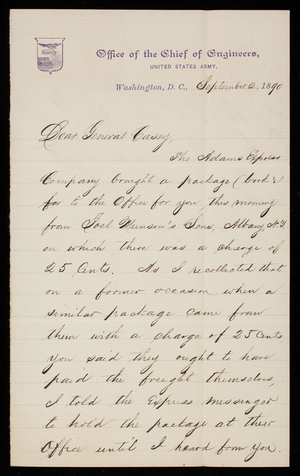 Office of the Chief of Engineers,
UNITED STATES ARMY,
Washington, D. C., September 2, 1890
Dear General Casey,
The Adams Express
Company brought a package (book?)
for to the Office for you this morning
from Joel Munson's Sons, Albany N.Y
on which there was a charge of
25 cents. As I recollected that
on a former occasion when a
similar package came from
them with a charge of 25 cents
you said they ought to have
paid the freight themselves,
I told the Express messenger
to hold the package at their
Office until I heard from you.